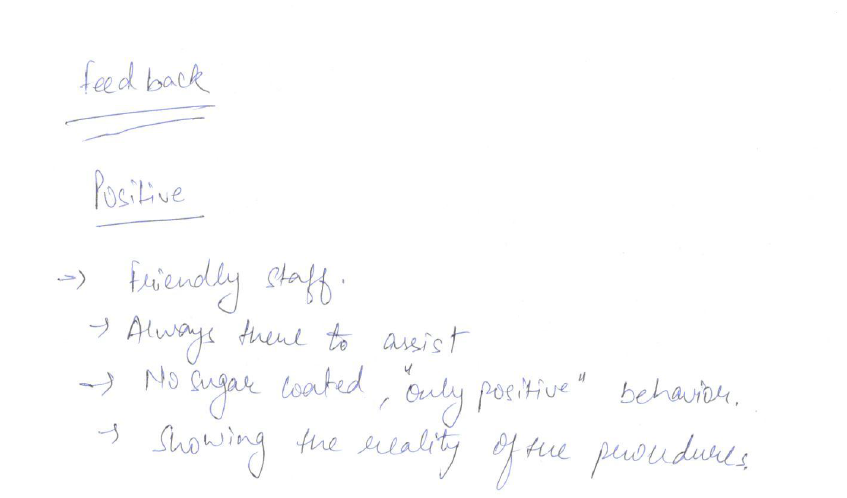 feedback
Positive
→ Friendly staff.
→ Always there to assist
→ No sugar coated, "only positive" behavior.
→ Showing the reality of the procedures.